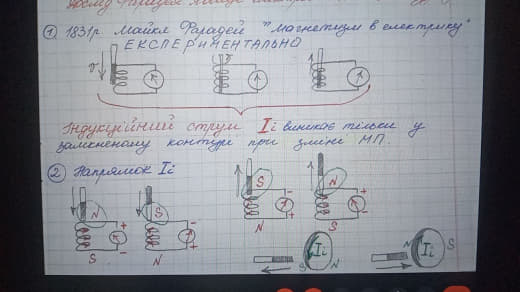 Дослід Фарадея. Явище електро
① 1831р Майкл Фарадей "магнетизм в електрику"
ЕКСПЕРИМЕНТАЛЬНО
Індукційний струм Ii виникає тільки у
замкненому контурі при зміні МП.
② Напрямок Ii
N S S N
+ - - +
- + + -
S N N S
Ii Ii
S N N S